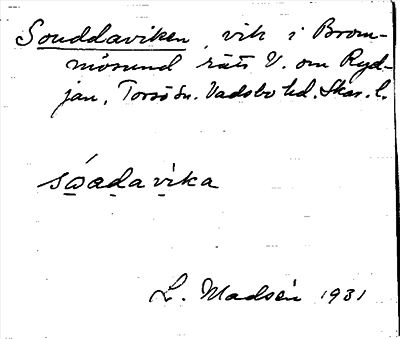 Souddaviken, vik i Brom-
mösund rätt V. om Ryd-
jan, Torsö Sn. Vadsbo hd. Skar. l.
sωadavika
L. Madsén 1931